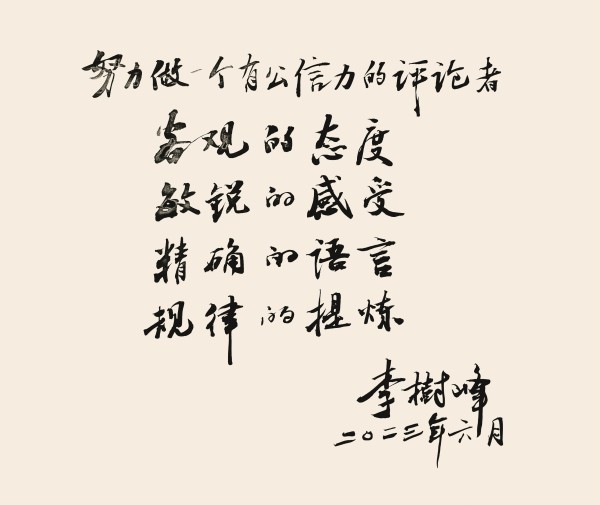 努力做一个有公信力的评论者
客观的态度
敏锐的感受
精确的语言
规律的提炼
李樹峰
二〇二三年六月